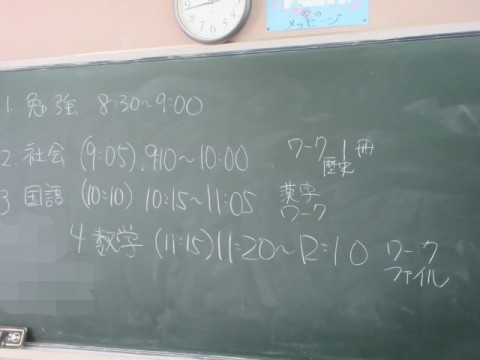 メッセージ
1. 勉強 8:30～9:00
2. 社会 (9:05) 9:10～10:00 ワーク1冊
歴史
3 国語 (10:10) 10:15～11:05 漢字
ワーク
4 数学 (11:15) 11:20～12:10 ワーク
ファイル